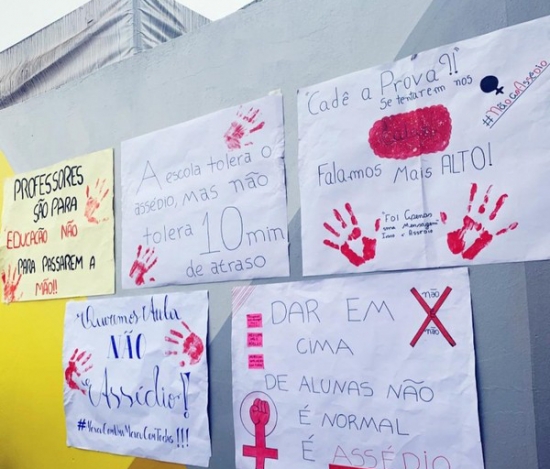 PROFESSORES
SÃO PARA
EDUCAÇÃO NÃO
PARA PASSAREM A
MÃO!!
A escola tolera o
assédio, mas não
tolera 10 min
de atraso
"Cadê a Prova?!"
Se tentarem nos
Falamos Mais ALTO!
"Foi apenas
uma mensagem"
Isso é Assédio
#NãoaoAssédio
"Queremos Aula
NÃO
Assédio!
!!!
DAR EM
CIMA
DE ALUNAS NÃO
É NORMAL
É ASSÉDIO
não
não